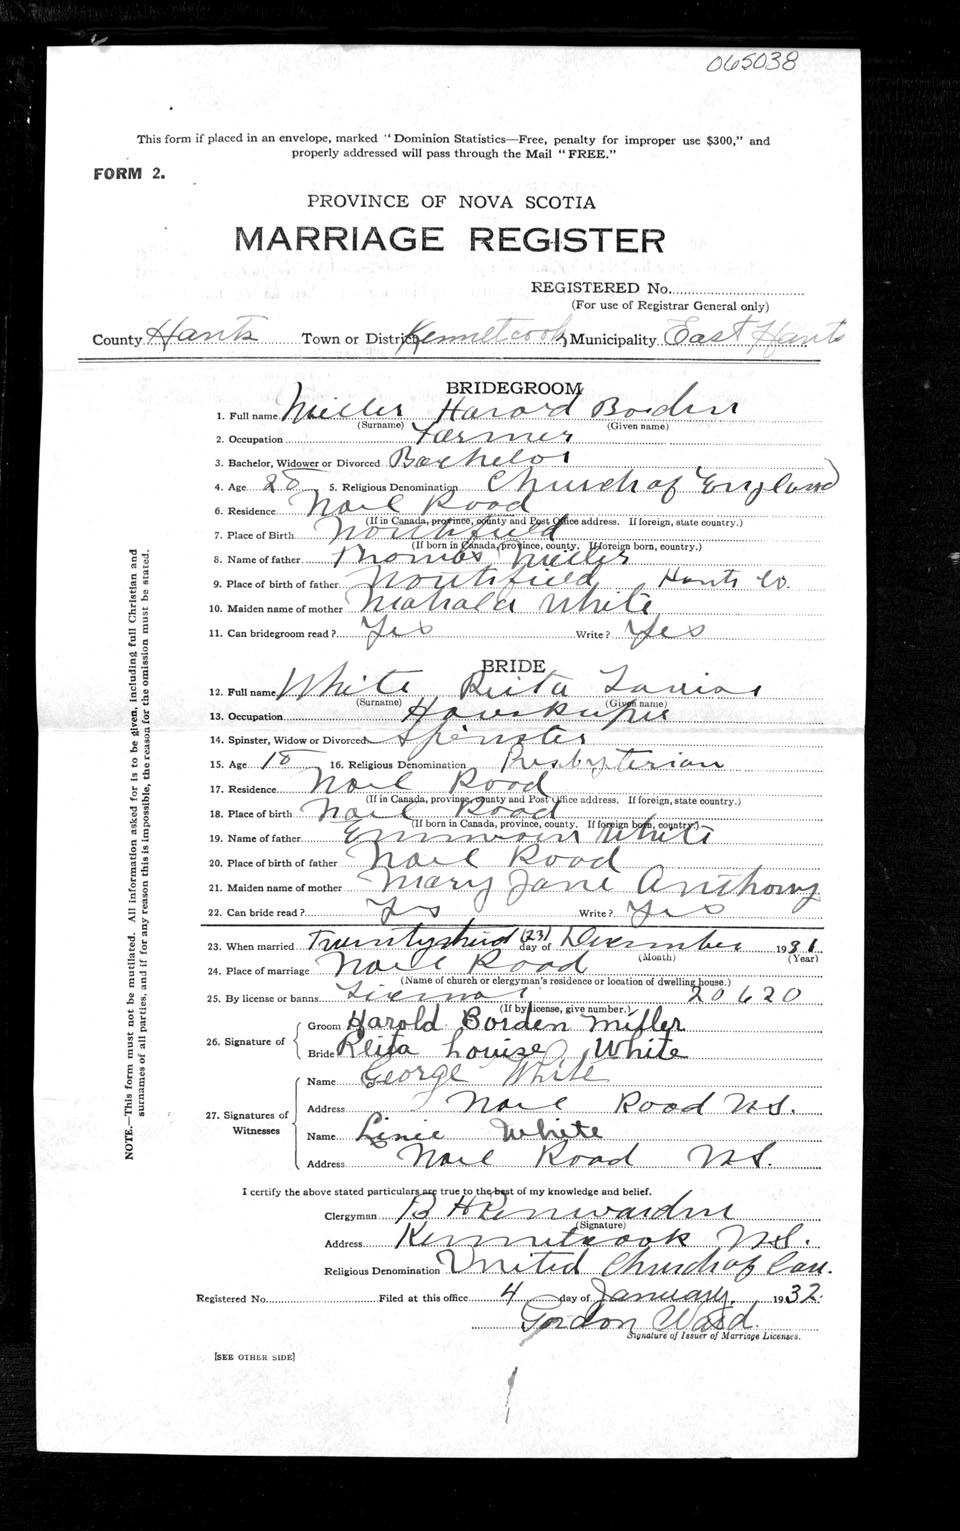 065038
This form if placed in an envelope, marked "Dominion Statistics—Free, penalty for improper use $300," and
properly addressed will pass through the Mail "FREE."
FORM 2.
PROVINCE OF NOVA SCOTIA
MARRIAGE REGISTER
REGISTERED No.
(For use of Registrar General only)
County Hants Town or District Kennetcook Municipality East Hants
BRIDEGROOM
1. Full name Miller Harold Borden
(Surname) (Given name)
2. Occupation Farmer
3. Bachelor, Widower or Divorced Bachelor
4. Age 28 5. Religious Denomination Church of England
6. Residence Noel Road
(If in Canada, province, county and Post Office address. If foreign, state country.)
7. Place of Birth Northfield
(If born in Canada, province, county. If foreign born, country.)
8. Name of father Thomas Miller
9. Place of birth of father Northfield Hants Co.
10. Maiden name of mother Mahala White
11. Can bridegroom read? Yes Write? Yes
BRIDE
12. Full name White Reita Louise
(Surname) (Given name)
13. Occupation Housekeeper
14. Spinster, Widow or Divorced Spinster
15. Age 18 16. Religious Denomination Presbyterian
17. Residence Noel Road
(If in Canada, province, county and Post Office address. If foreign, state country.)
18. Place of birth Noel Road
(If born in Canada, province, county. If foreign born, country.)
19. Name of father White
20. Place of birth of father Noel Road
21. Maiden name of mother Mary Jane Anthony
22. Can bride read? Yes Write? Yes
23. When married Twentythird (23) day of December 1931
(Month) (Year)
24. Place of marriage Noel Road
(Name of church or clergyman's residence or location of dwelling house.)
25. By license or banns License 20620
(If by license, give number.)
26. Signature of
Groom Harold Borden Miller
Bride Reita Louise White
27. Signatures of Witnesses
Name George White
Address Noel Road N.S.
Name White
Address Noel Road N.S.
I certify the above stated particulars are true to the best of my knowledge and belief.
Clergyman B H
(Signature)
Address Kennetcook N.S.
Religious Denomination United Church of Can.
Registered No. Filed at this office 4 day of January 1932.
Gordon Ward.
Signature of Issuer of Marriage Licenses.
[SEE OTHER SIDE]
NOTE.—This form must not be mutilated. All information asked for is to be given, including full Christian and
surnames of all parties, and if for any reason this is impossible, the reason for the omission must be stated.